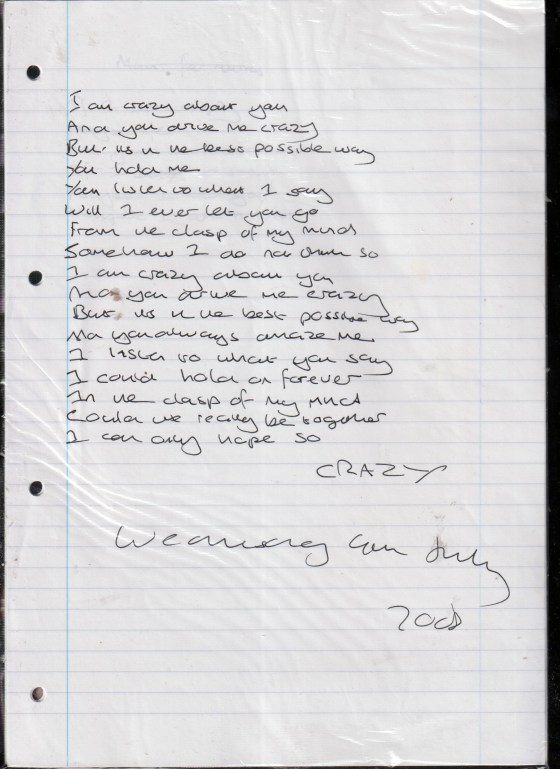 I am crazy about you
And you drive me crazy
But its in the best possible way
You hold me
You listen to what I say
Will I ever let you go
From the clasp of my mind
Somehow I do not think so
I am crazy about you
And you drive me crazy
But its in the best possible way
And you always amaze me
I listen to what you say
I could hold on forever
In the clasp of my mind
Could we really be together
I can only hope so
CRAZY
Wednesday July
2008